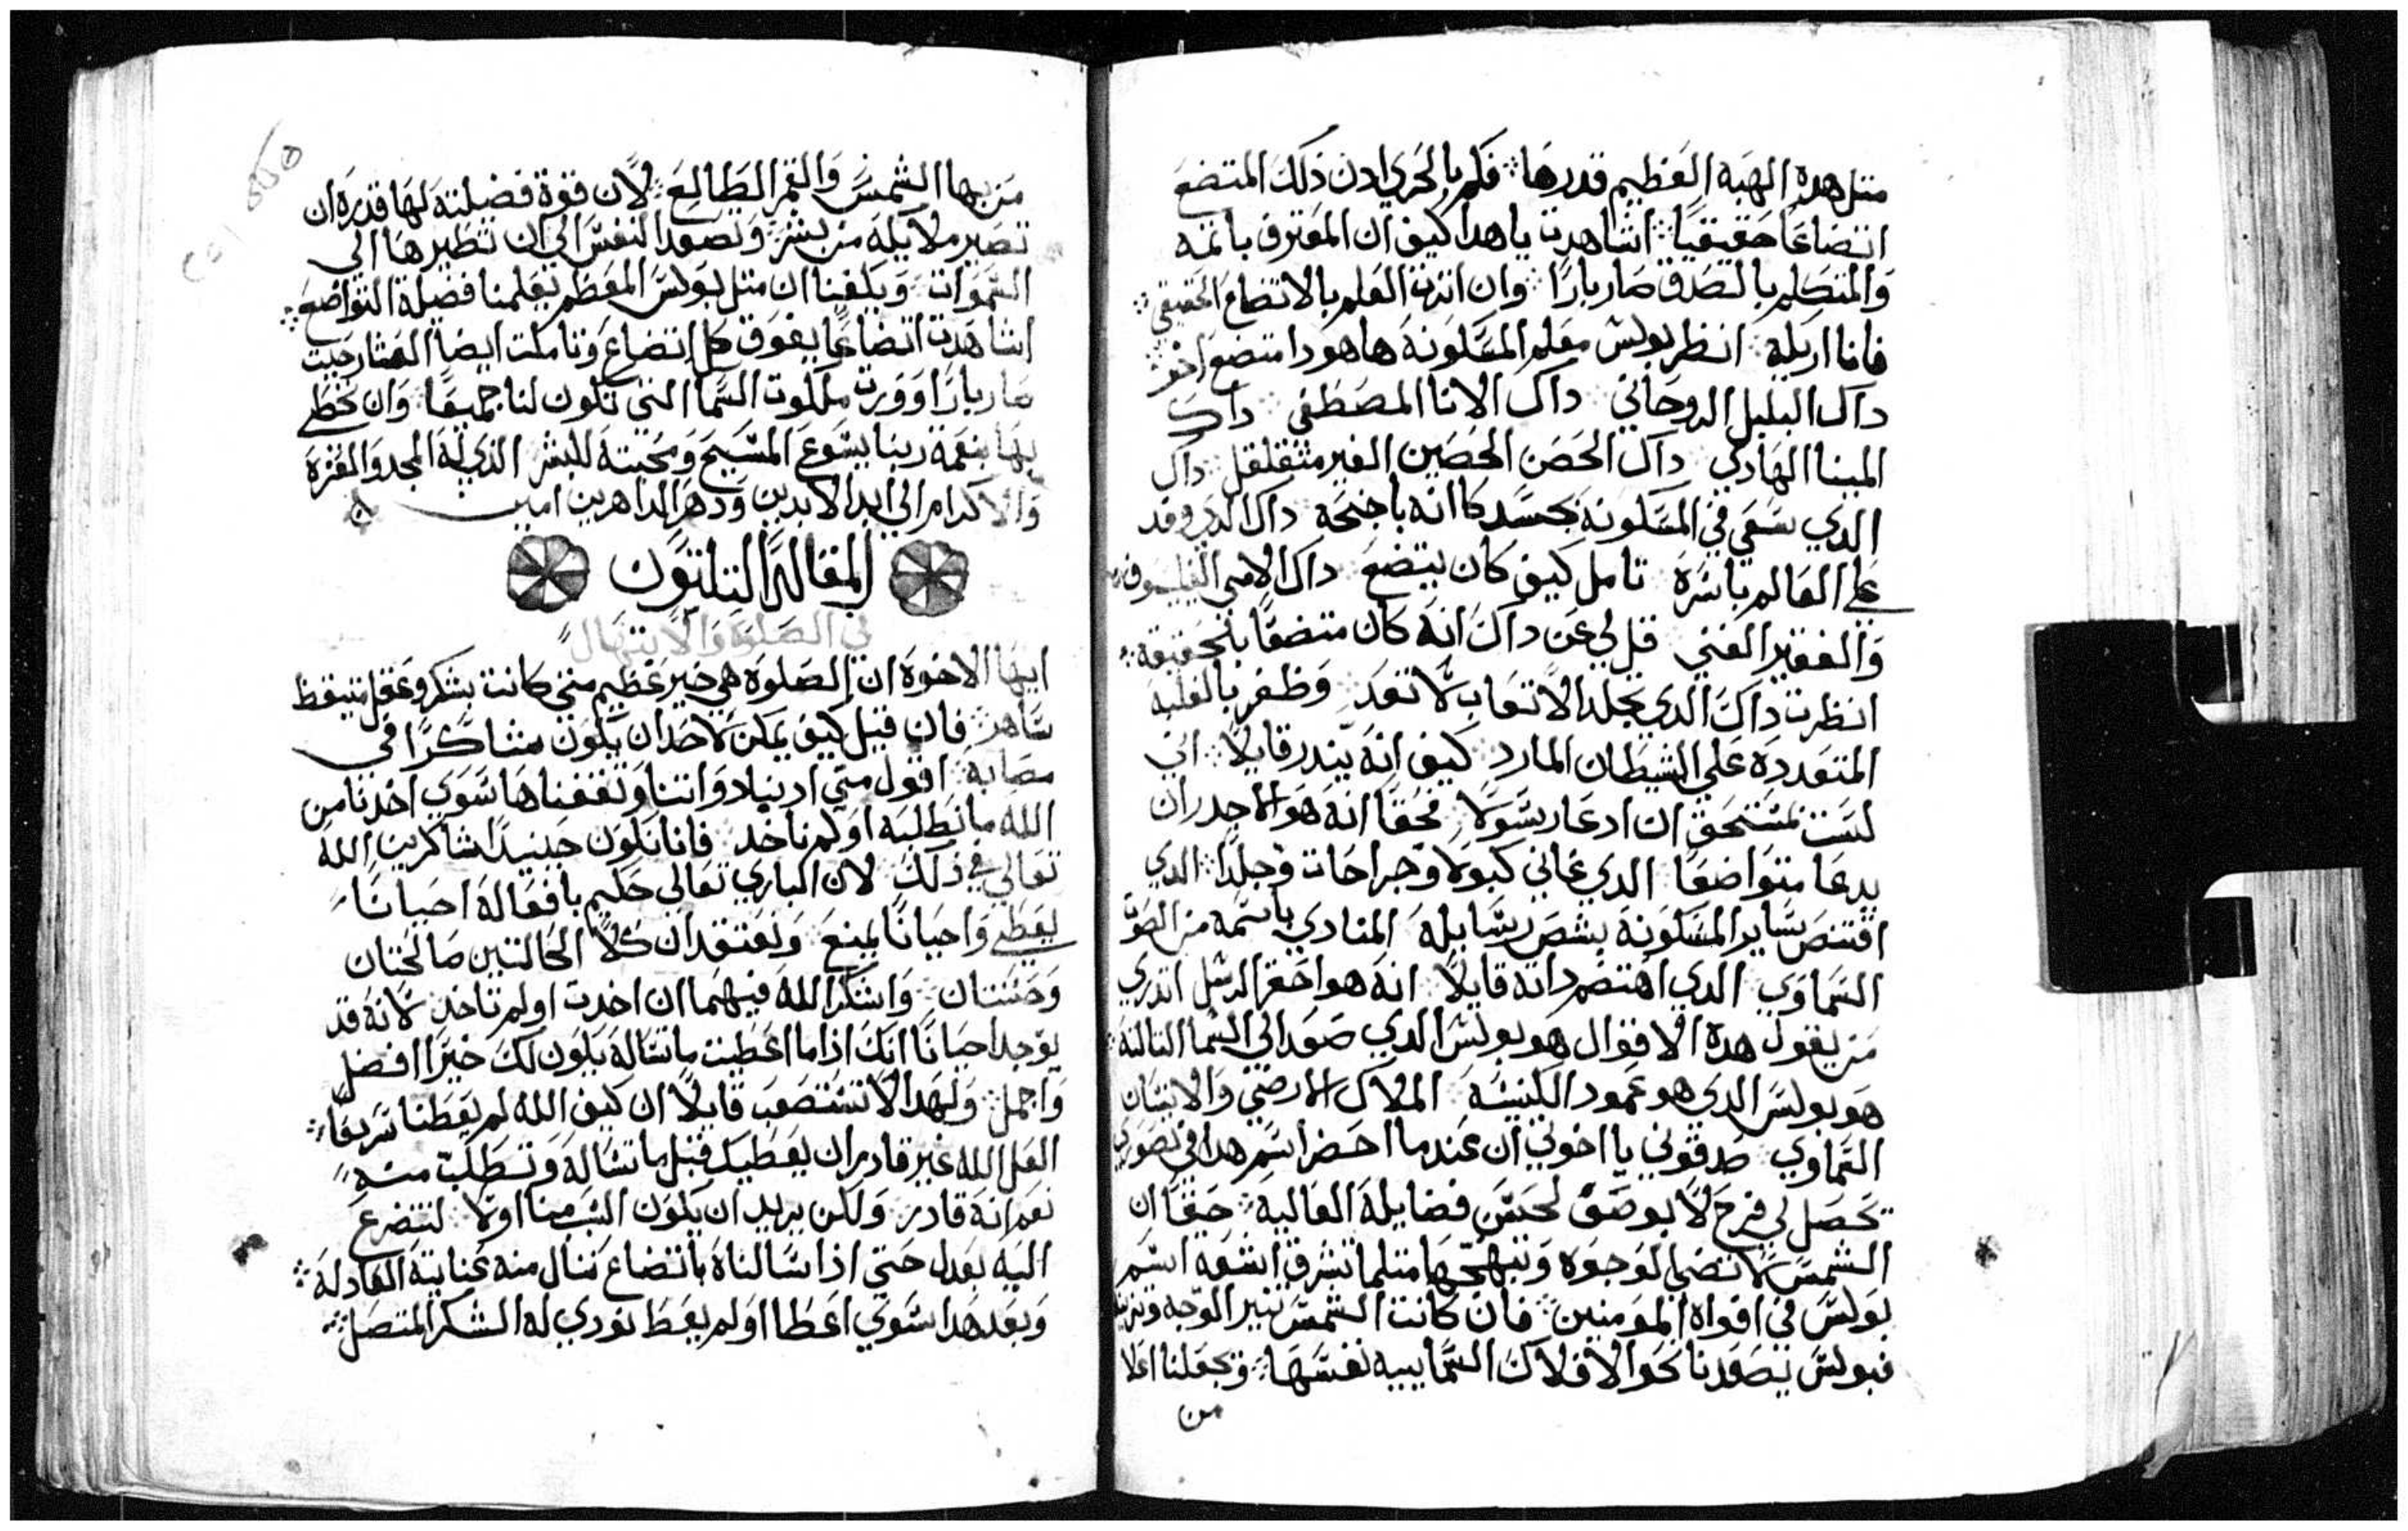 متل هده الهبه العظيم قدرها فكم بالحري ادن ذلك المتضع
اتضاعا حقيقيا اشاهدت يا هدا كيف ان المعترف باتمه
والمتكلم بالصدق صار بارا وان اثرت العلم بالاتضاع الحقيقي
فانا اريكه انظر بولس معلم المسكونه ها هودا متضع
داك البلبل الروحاني داك الانا المصطفى داك
المينا الهادي داك الحصن الحصين الغير متقلقل داك
الدي سعي في المسكونه بجسد كاانه باجنحة داك الدي وفد
على العالم باسره تامل كيف كان يتضع داك الامي الفيلسوف
والفقير الغني قل لي عن داك انه كان متضعا بالحقيقة
انظرت داك الدي تجلد الاتعاب لا تعد وظفر بالغلبه
المتعدده على الشيطان المارد كيف انه يندر قايلا اني
لست بمستحق ان ادعا رسولا محقا انه هو الاجدر ان
يدعا متواضعا الدي عاني كبولا وجراحات وجلدا الدي
اقتنص ساير المسكونة بشص رسايله المنادي باسمه من الصوت
السماوي الدي اهتضم داته قايلا انه هو احقر الرسل اتدري
من يقول هده الاقوال هو بولس الدي صعد الي السما التالته
هو بولس الدي هو عمود الكنيسه الملاك الارضي والانسان
السماوي صدقوني يا اخوتي ان عندما احضر اسم هدا في تصوري
تحصل لي فرح لا يوصف لحسن فضايله العاليه حقا ان
الشمس لا تضي لوجوه وتبهجها متلما تشرق اشعه اسم
بولس في افواه المومنين فان كانت الشمس تنير الوجه وتزينه
فبولس يصعدنا نحو الافلاك السماييه نفسها وتجعلنا اعلا
من
من بها الشمس والقمر الطالع لان قوة فضيلته لها قدره ان
تصير ملايكه من بشر وتصعد النفس الى ان تطيرها الى
السموات ويكفينا ان متل بولس المعظم يعلمنا فضيلة التواضع
اشاهدت اتضاعا يفوق كل اتضاع وتاملت ايضا العشار حيت
صار بارا وورت ملكوت السما التي تكون لنا جميعا وان نحظي
بها بنعمة ربنا يسوع المسيح ومحبته للبشر الذي له المجد والعزة
والاكرام الى ابد الابدين ودهر الداهرين امين
المقالة التلتون
في الصلوة والابتهال
ايها الاخوه ان الصلوة هي خير عظيم متى كانت بشكر وعقل متيقظ
ساهر فان قيل كيف يمكن لاحد ان يكون شاكرا في
مصابه اقول متي ادبنا دواتنا وثقفناها سوي اخدنا من
الله ما نطلبه او لم ناخد فانا نكون حينيدا شاكرين الله
تعالى في ذلك لان الباري تعالى حكيم بافعاله احيانا
يعطي واحيانا يمنع ونعتقد ان كلا الحالتين صالحتان
وحسنتان واشكر الله فيهما ان اخدت او لم تاخد لانه قد
يوجد احيانا انك اذا ما اعطيت ما تساله يكون لك خيرا افضل
واجمل ولهدا لا تستصعب قايلا ان كيف الله لم يعطنا سريعا
العل الله غير قادر ان يعطيك قبل ما تساله وتطلب منه
نعم انه قادر ولكن يريد ان يكون السبب منا اولا لنتضرع
اليه بعدل حتى اذا سالناه باتضاع ننال منه عنايته العادله
وبعد هدا سوي اعطا او لم يعط نودي له الشكر المتصل